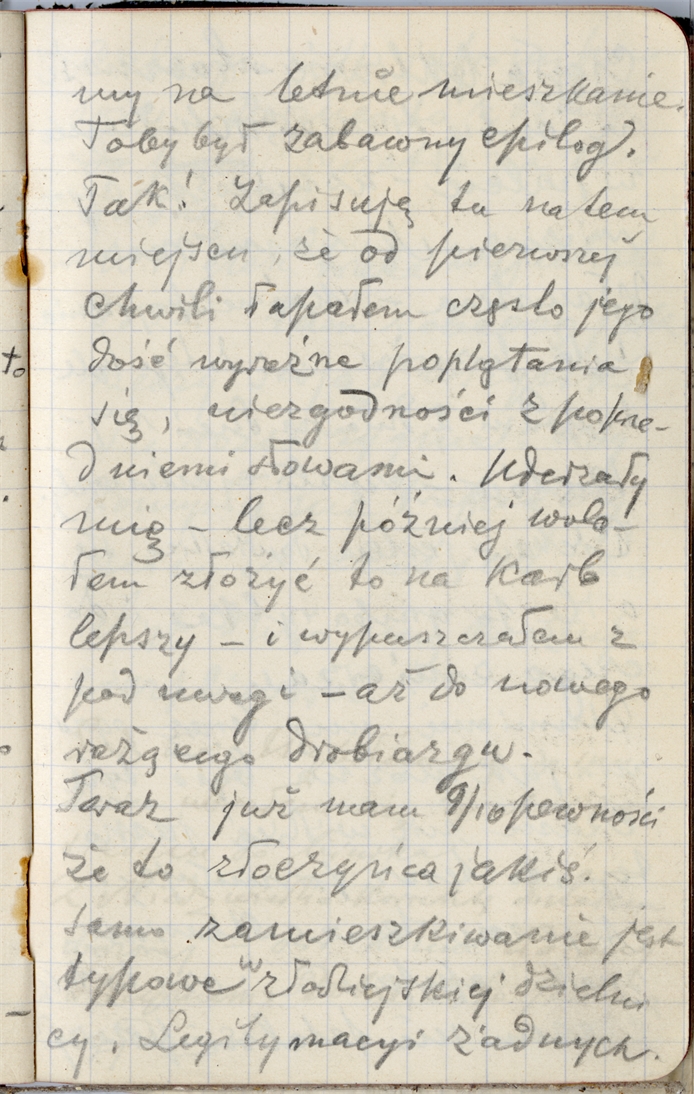 my na letnie mieszkanie.
Toby był zabawny epilog.
Tak! Zapisuję tu na tem
miejscu, że od pierwszej
chwili łapałem często jego
dość wyraźne poplątania
się, niezgodności z poprze-
dniemi słowami. Uderzały
mię – lecz później wola-
łem złożyć to na karb
lepszy – i wypuszczałem z
pod uwagi – aż do nowego
rażącego drobiazgu.
Teraz już mam 9/10 pewności
że to złoczyńca jakiś.
Samo zamieszkiwanie jest
typowe w złodziejskiej dzielni
cy. Legitymacyi żadnych.
to